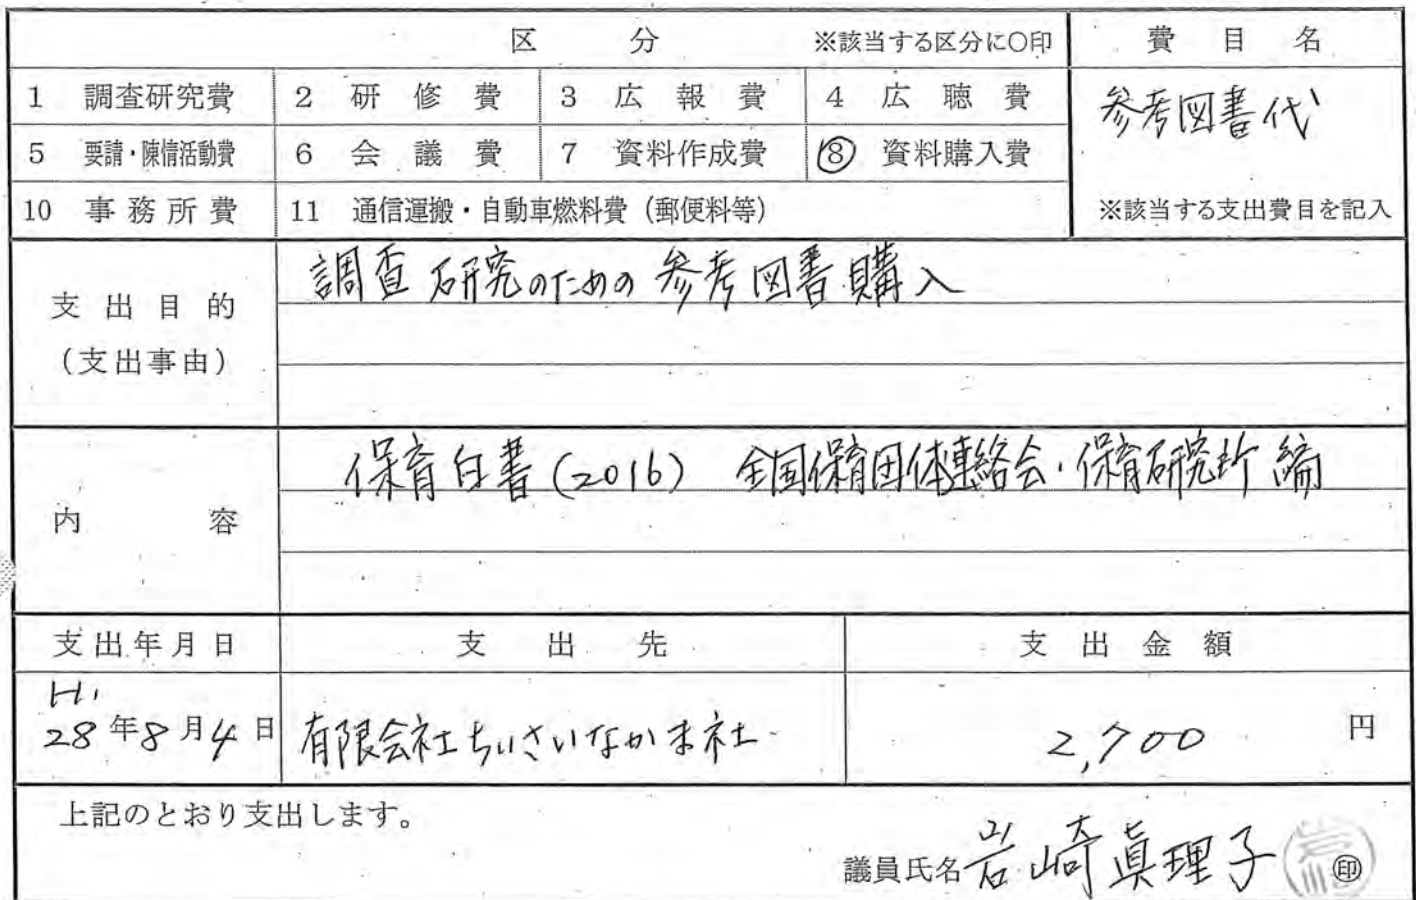 区 分 ※該当する区分に○印 費 目 名
1 調査研究費 2 研 修 費 3 広 報 費 4 広 聴 費 参考図書代
5 要請・陳情活動費 6 会 議 費 7 資料作成費 ⑧ 資料購入費
10 事 務 所 費 11 通信運搬・自動車燃料費（郵便料等） ※該当する支出費目を記入
支 出 目 的 調査研究のための参考図書購入
（支出事由）
保育白書(2016) 全国保育団体連絡会・保育研究所編
内 容
支出年月日 支 出 先 支 出 金 額
H.
28年8月4日 有限会社ちいさいなかま社 2,700 円
上記のとおり支出します。
議員氏名 岩崎眞理子 ㊞